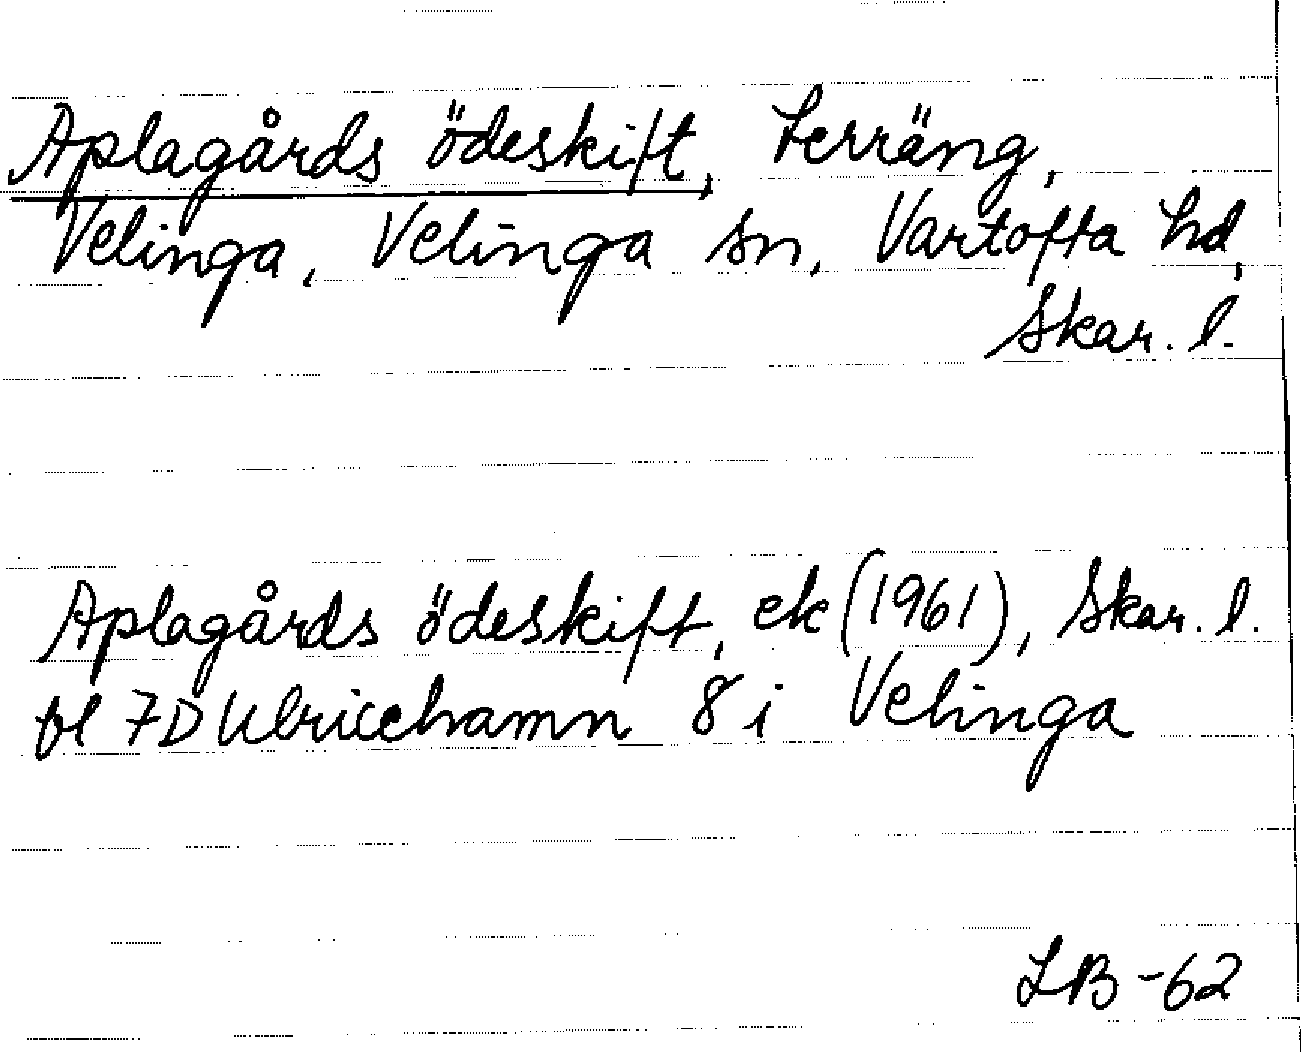 Aplagårds ödeskift, terräng,
Velinga, Velinga sn, Vartofta hd,
Skar. l.
Aplagårds ödeskift, ek (1961), Skar. l.
bl 7D Ulricehamn 8 i Velinga
LB-62